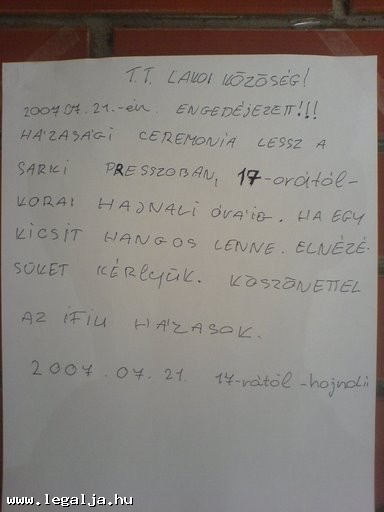 T.T. LAKOI KÖZÖSÉG!
2007.07.21.-én. ENGEDÉJEZETT!!!
HÁZASÁGI CEREMONIA LESSZ A
SARKI PRESSZOBAN, 17-orától-
KORAI HAJNALI ÓRÁIG. HA EGY
KICSIT HANGOS LENNE. ELNÉZÉ-
SÜKET KÉRlyÜK. KÖSZÖNETTEL
AZ IFIU HÁZASOK.
2007.07.21. 17-rától-hajnali
www.legalja.hu